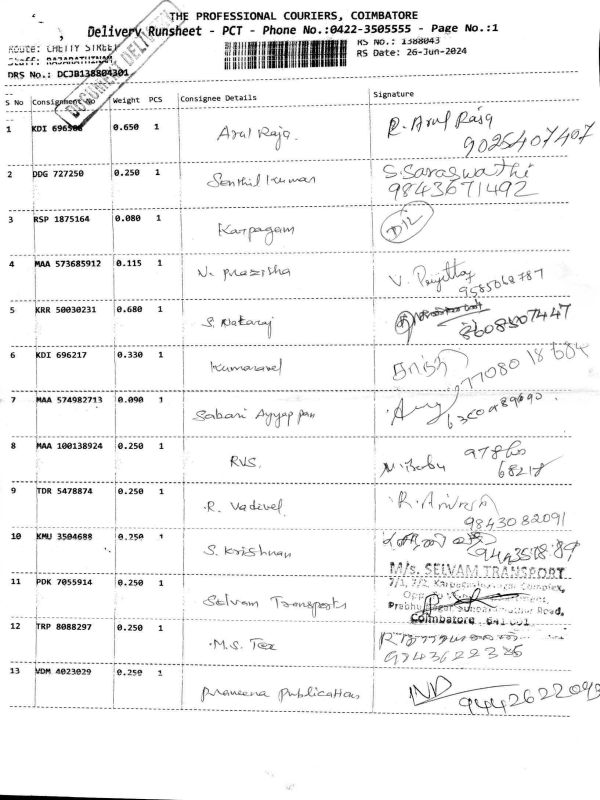 THE PROFESSIONAL COURIERS, COIMBATORE
Delivery Runsheet - PCT - Phone No.:0422-3505555 - Page No.:1
Route: CHETTY STREET
RS No.: 1388043
Staff: RAJARATHINAM
RS Date: 26-Jun-2024
DRS No.: DCJB138804301
DOCUMENT DELIVERED
S No Consignment No Weight PCS Consignee Details Signature
1 KDI 0.650 1 Arul Raja R. Arul Raja
9025407407
2 DDG 727250 0.250 1 Senthil Kumar S. Saraswathi
9843671492
3 RSP 1875164 0.080 1 Karpagam
4 MAA 573685912 0.115 1 V.
9585068787
5 KRR 50030231 0.680 1 S. Nataraj
8608507447
6 KDI 696217 0.330 1 Kumaravel
77080 18684
7 MAA 574982713 0.090 1 Sabari Ayyappan
8 MAA 100138924 0.250 1 RVS. M. Babu
68218
9 TDR 5478874 0.250 1 R. Vadivel R.
9843082091
10 KMU 3504688 0.250 1 S. Krishnan
11 PDK 7055914 0.250 1 Selvam Transports M/s. SELVAM TRANSPORT
Coimbatore 641 001
12 TRP 8088297 0.250 1 M.S. Tex
9843622325
13 VDM 4023029 0.250 1 Praveena Publication